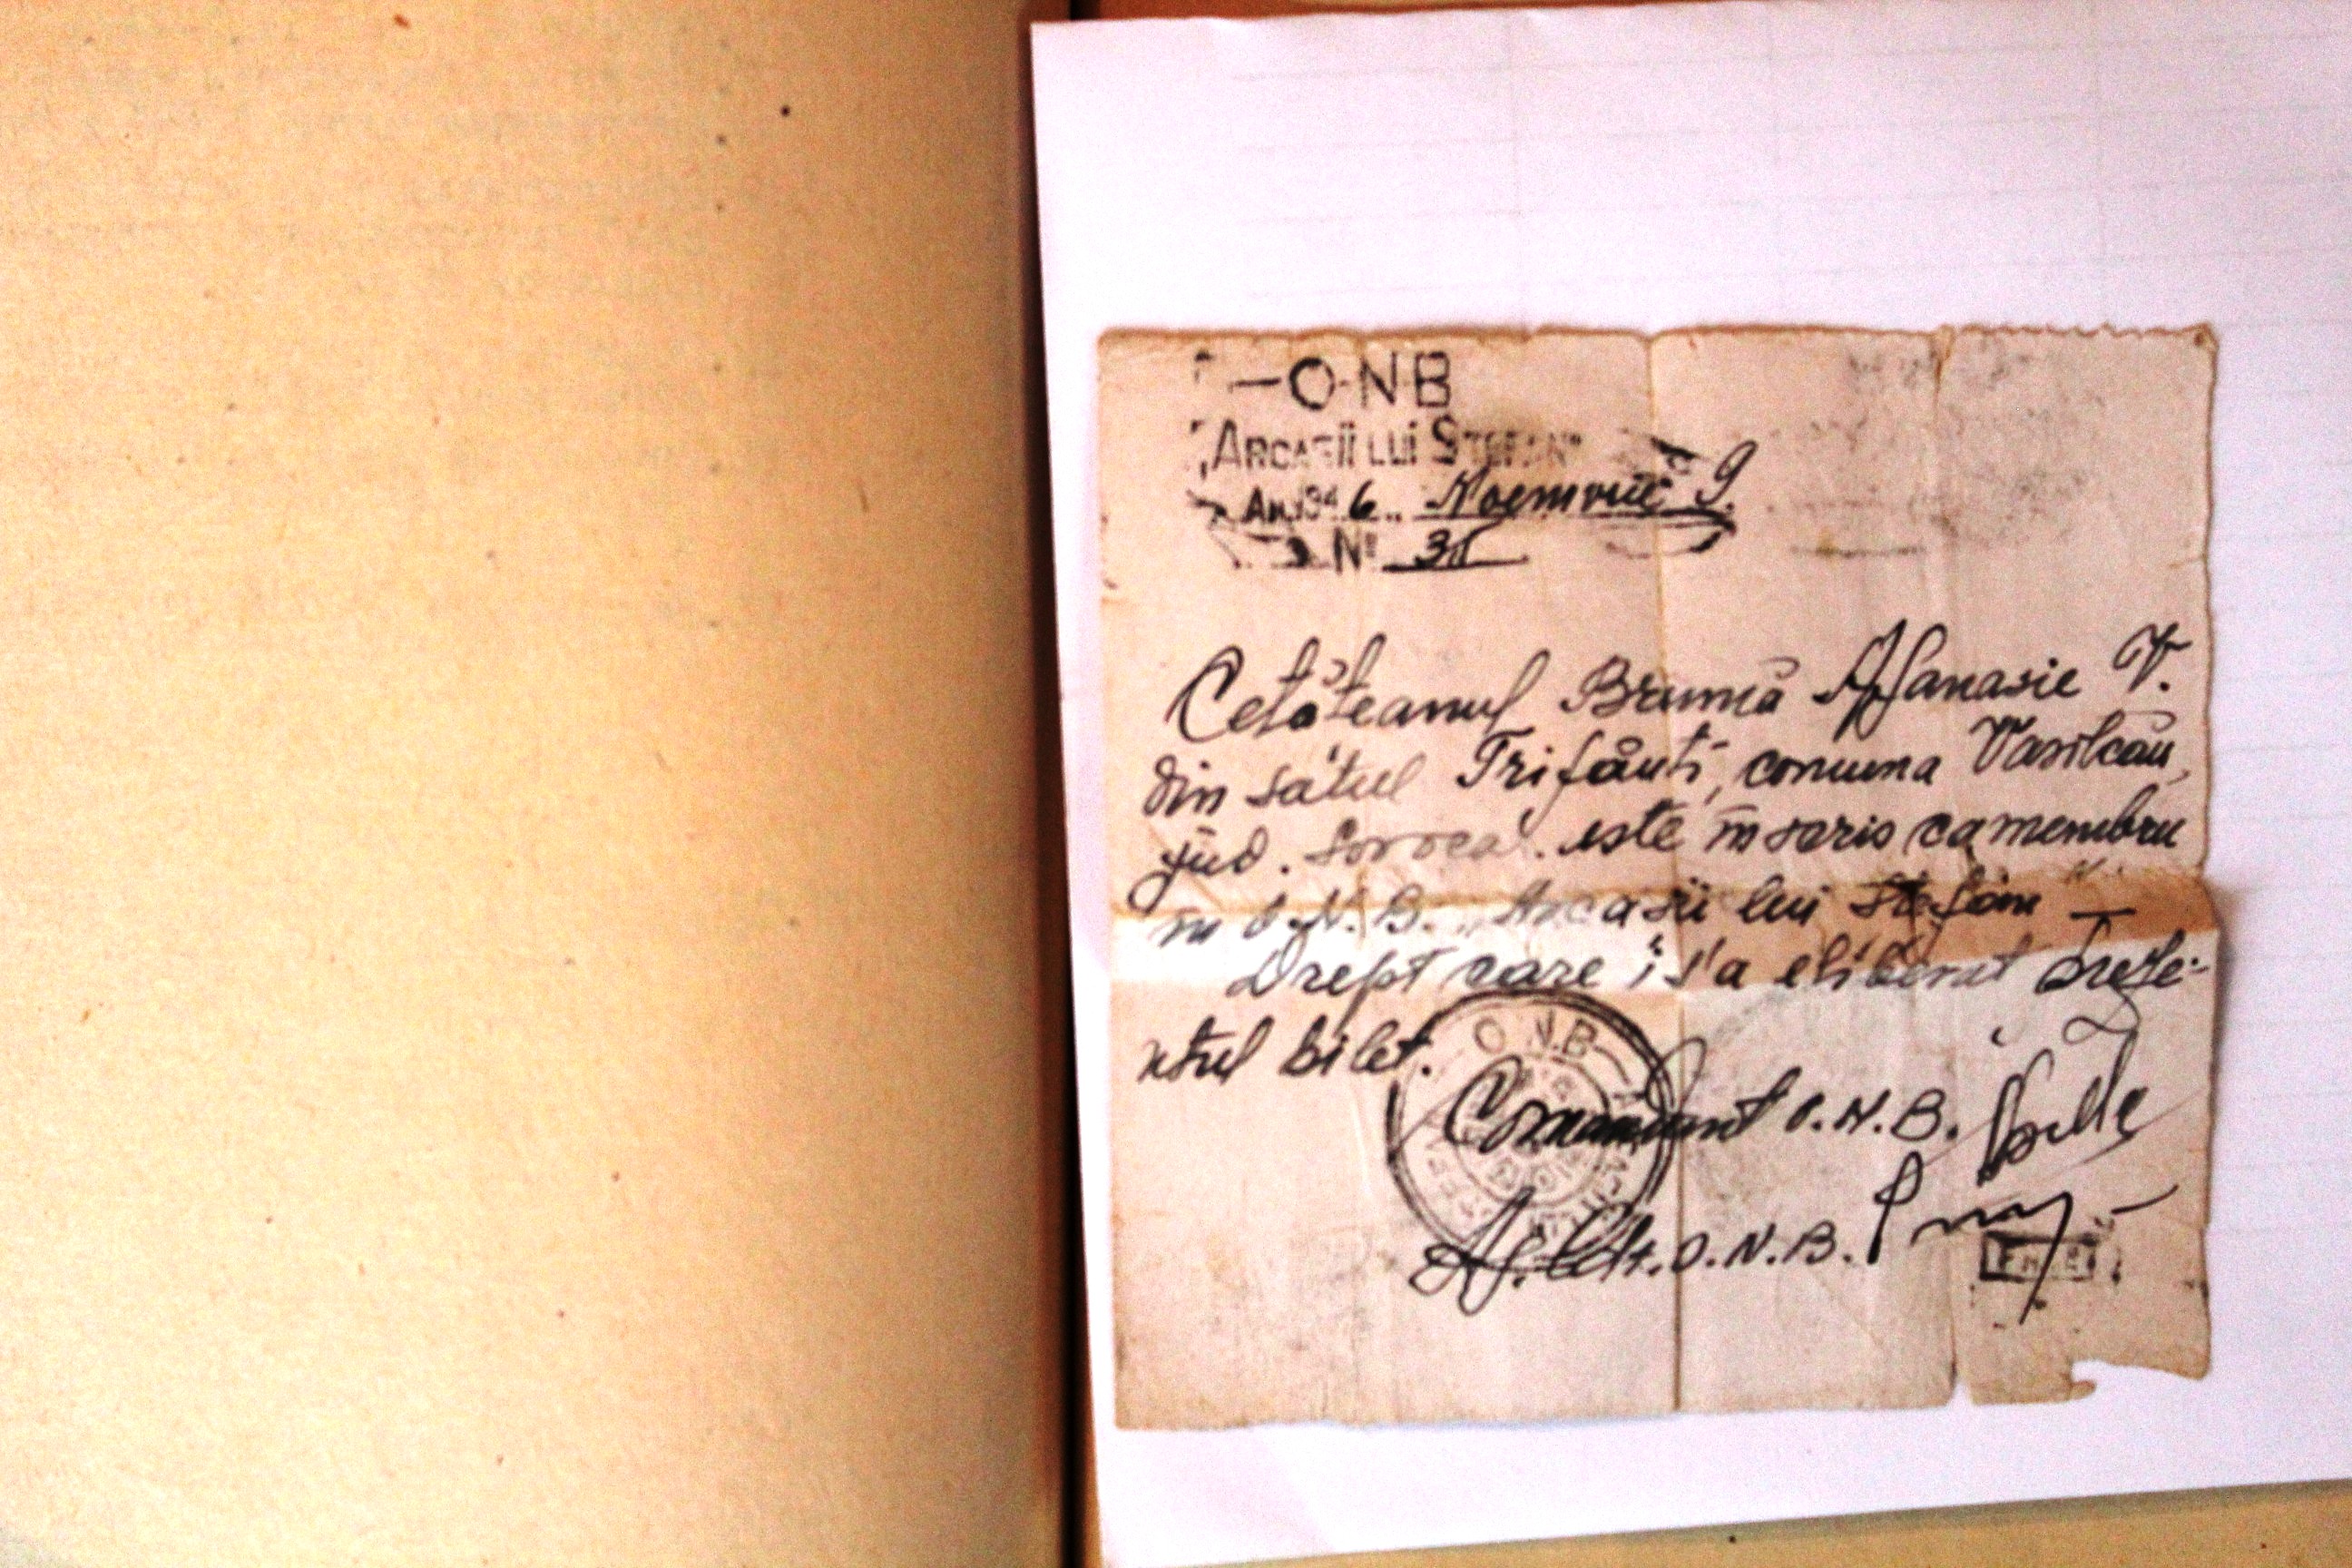 — O·N·B
„ARCAȘII LUI ȘTEFAN"
An. 1946.. Noemvrie 9.
Nº
Cetățeanul Brumă Afanasie V.
din sătul Trifăuți, comuna Vasilcău,
jud. Soroca. este înscris ca membru
în O.N.B. „Arcașii lui Ștefan" —
Drept care i s'a eliberat preze-
ntul bilet.
O.N.B
Comandant O.N.B.
O.N.B.